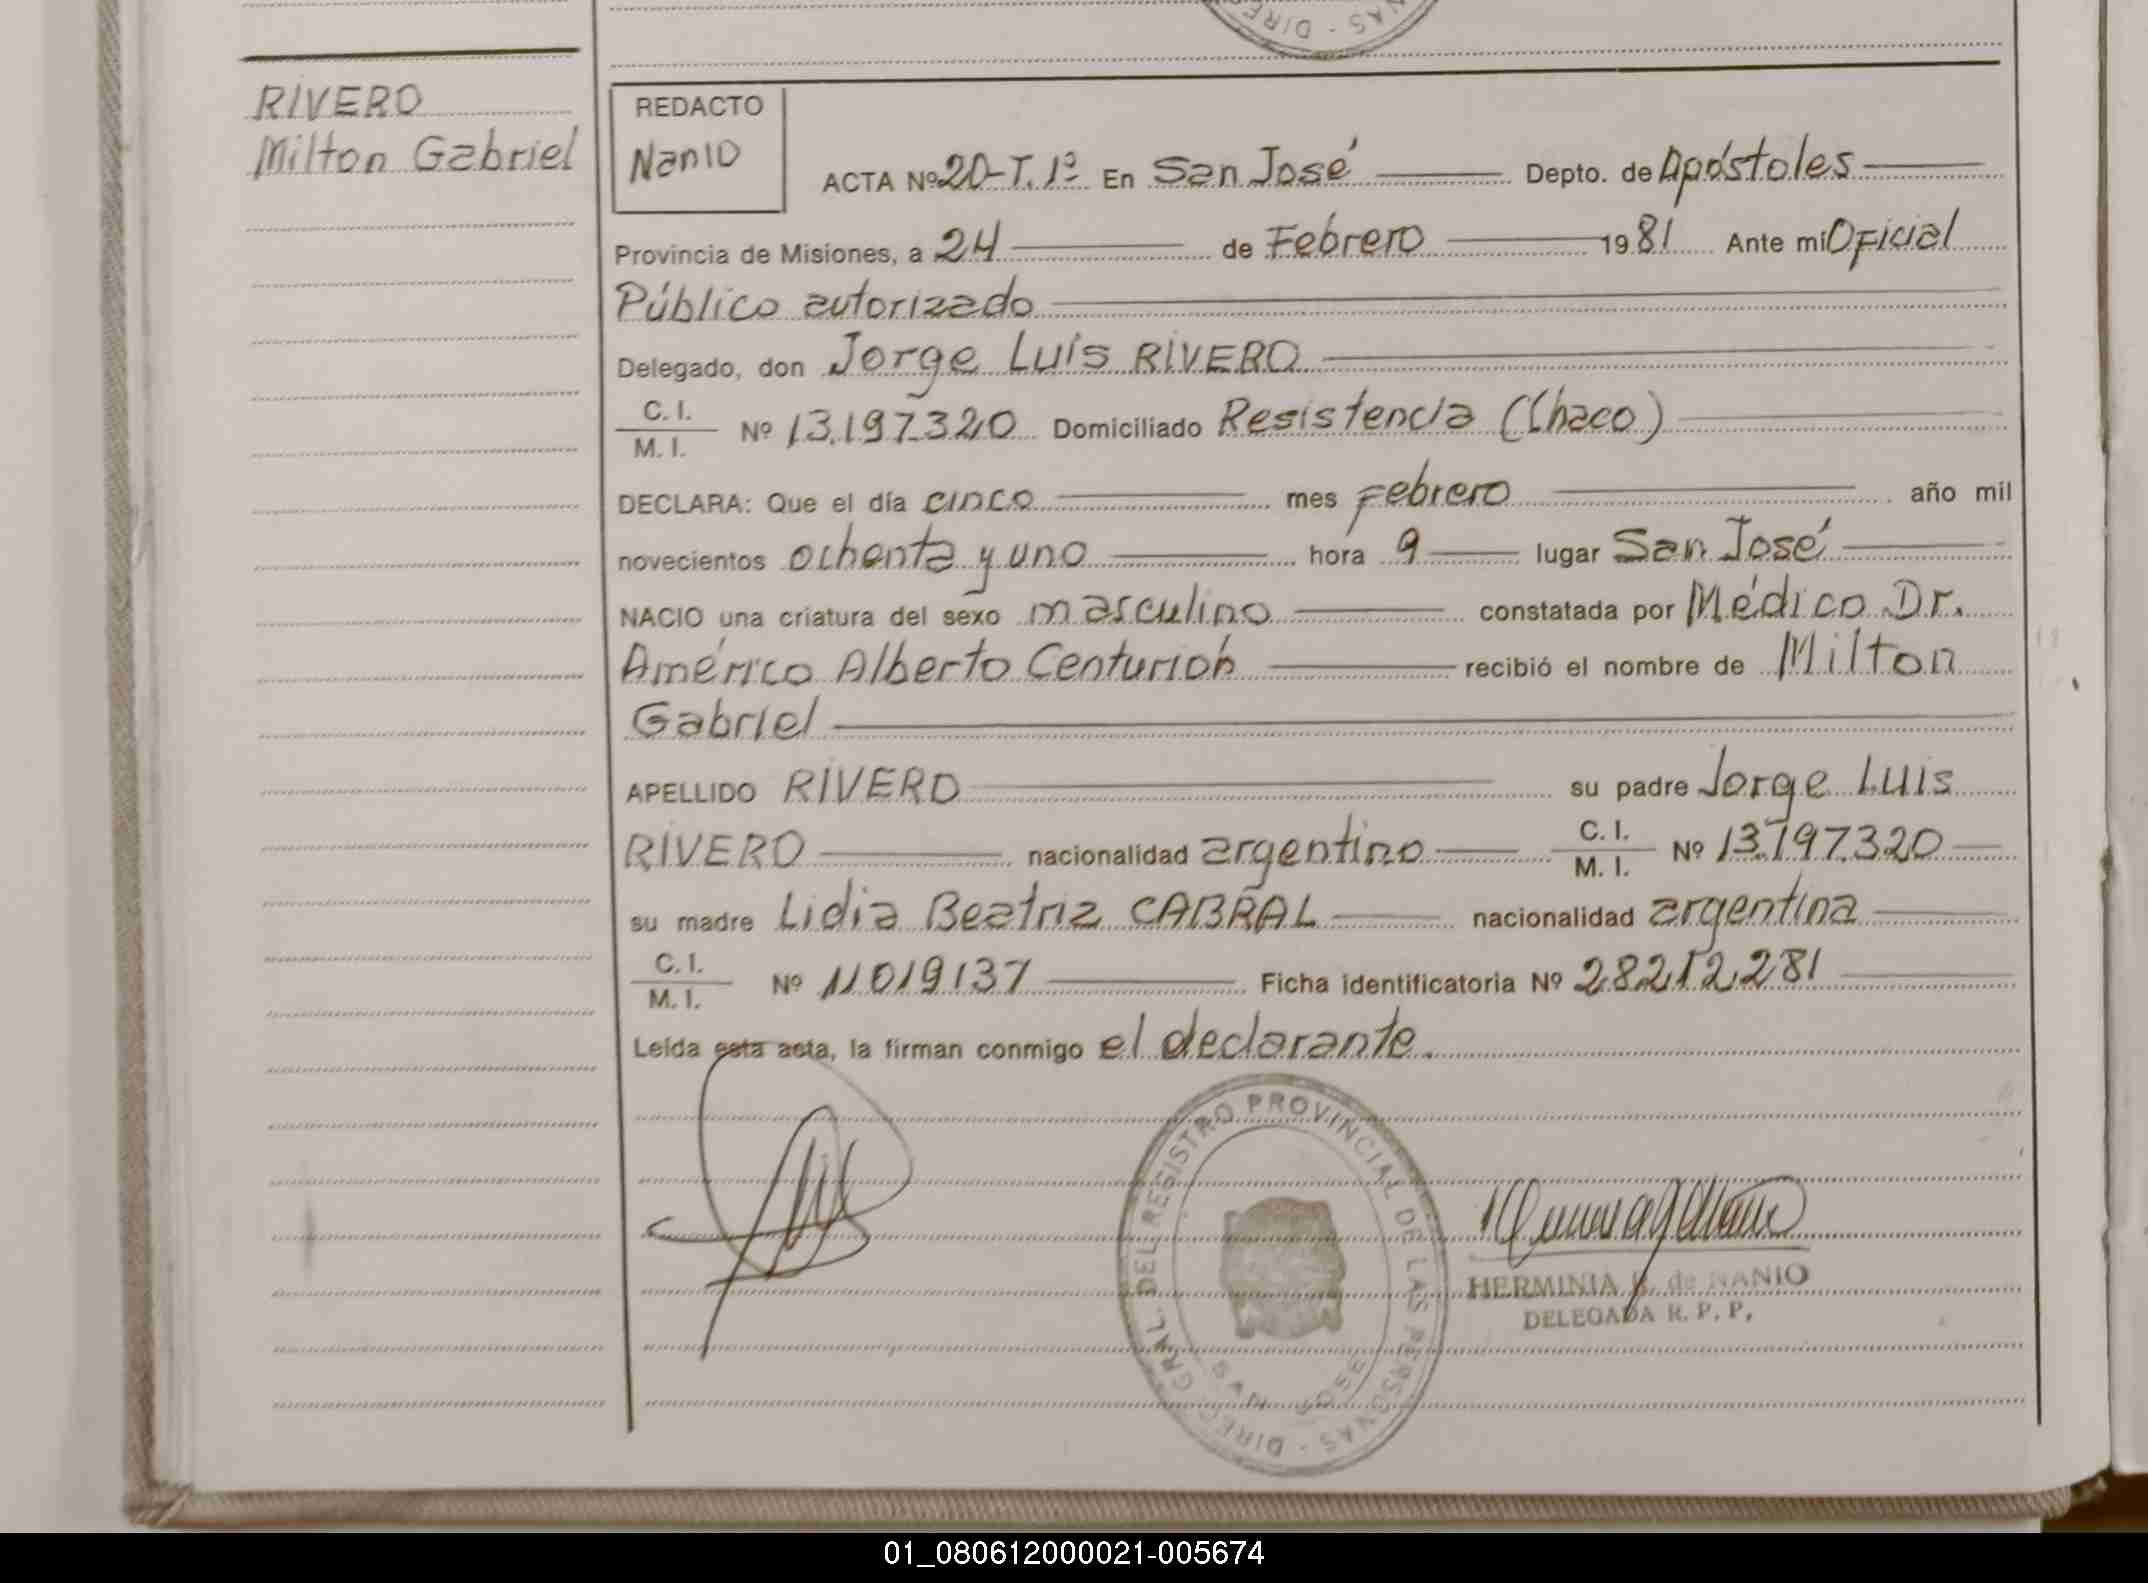 RIVERO
Milton Gabriel
REDACTO
Nanio
ACTA Nº 20-T.1º En San José Depto. de Apóstoles
Provincia de Misiones, a 24 de Febrero 1981 Ante mi Oficial
Público autorizado
Delegado, don Jorge Luis RIVERO
C. I.
M. I. Nº 13.197.320 Domiciliado Resistencia (Chaco)
DECLARA: Que el día cinco mes Febrero año mil
novecientos ochenta y uno hora 9 lugar San José
NACIO una criatura del sexo masculino constatada por Médico Dr.
Américo Alberto Centurión recibió el nombre de Milton
Gabriel
APELLIDO RIVERO su padre Jorge Luis
RIVERO nacionalidad argentino C. I. M. I. Nº 13.197.320
su madre Lidia Beatriz CABRAL nacionalidad argentina
C. I.
M. I. Nº 11019137 Ficha identificatoria Nº 28.212.281
Leída esta acta, la firman conmigo el declarante.
DIREC. GRAL. DEL REGISTRO PROVINCIAL DE LAS PERSONAS -
SAN JOSE
HERMINIA B. de NANIO
DELEGADA R. P. P.
01_080612000021-005674